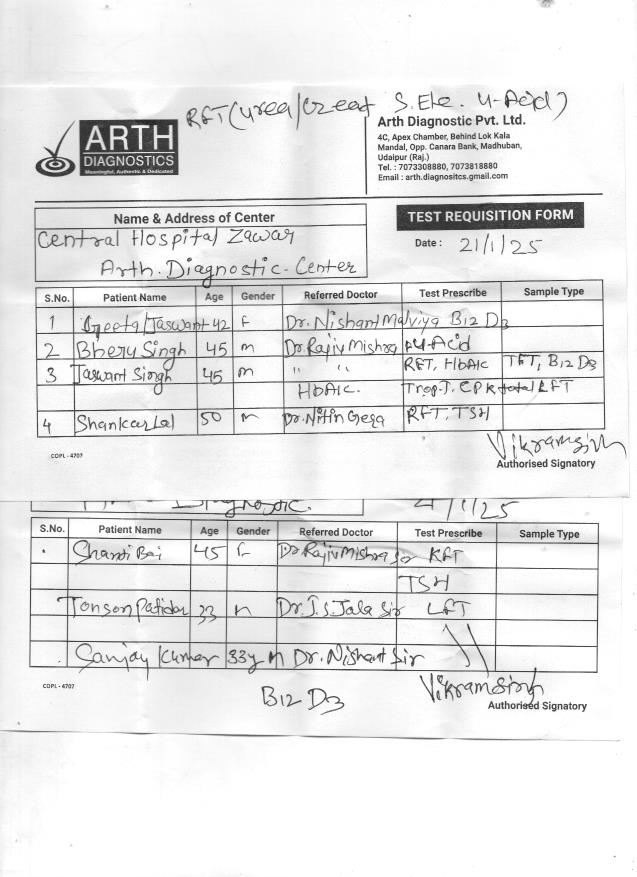 RFT (Urea/Creat S.Ele. U-Acid)
ARTH
DIAGNOSTICS
Meaningful, Authentic & Dedicated
Arth Diagnostic Pvt. Ltd.
4C, Apex Chamber, Behind Lok Kala
Mandal, Opp. Canara Bank, Madhuban,
Udaipur (Raj.)
Tel. : 7073308880, 7073818880
Email : arth.diagnositcs.gmail.com
Name & Address of Center
TEST REQUISITION FORM
Central Hospital Zawar
Arth. Diagnostic. Center
Date : 21/1/25
S.No. Patient Name Age Gender Referred Doctor Test Prescribe Sample Type
1 Geeta/Jaswant 42 F Dr. Nishant Malviya B12 D3
2 Bheru Singh 45 m Dr. Rajiv Mishra U-Acid
3 Jaswant Singh 45 m " " RFT, HbA1C TFT, B12 D3
HbA1C. Trop-T. CPK total LFT
4 Shankar Lal 50 m Dr. Nitin RFT, TSH
Vikramsingh
COPL - 4707
Authorised Signatory
Diagnostic. /1/25
S.No. Patient Name Age Gender Referred Doctor Test Prescribe Sample Type
Shanti Bai 45 F Dr. Rajiv Mishra Sir RFT
TSH
Tonson Patidar 33 M Dr. J.S. Jala Sir LFT
Sanjay Kumar 33y M Dr. Nishant Sir
Vikramsingh
COPL - 4707
B12 D3
Authorised Signatory